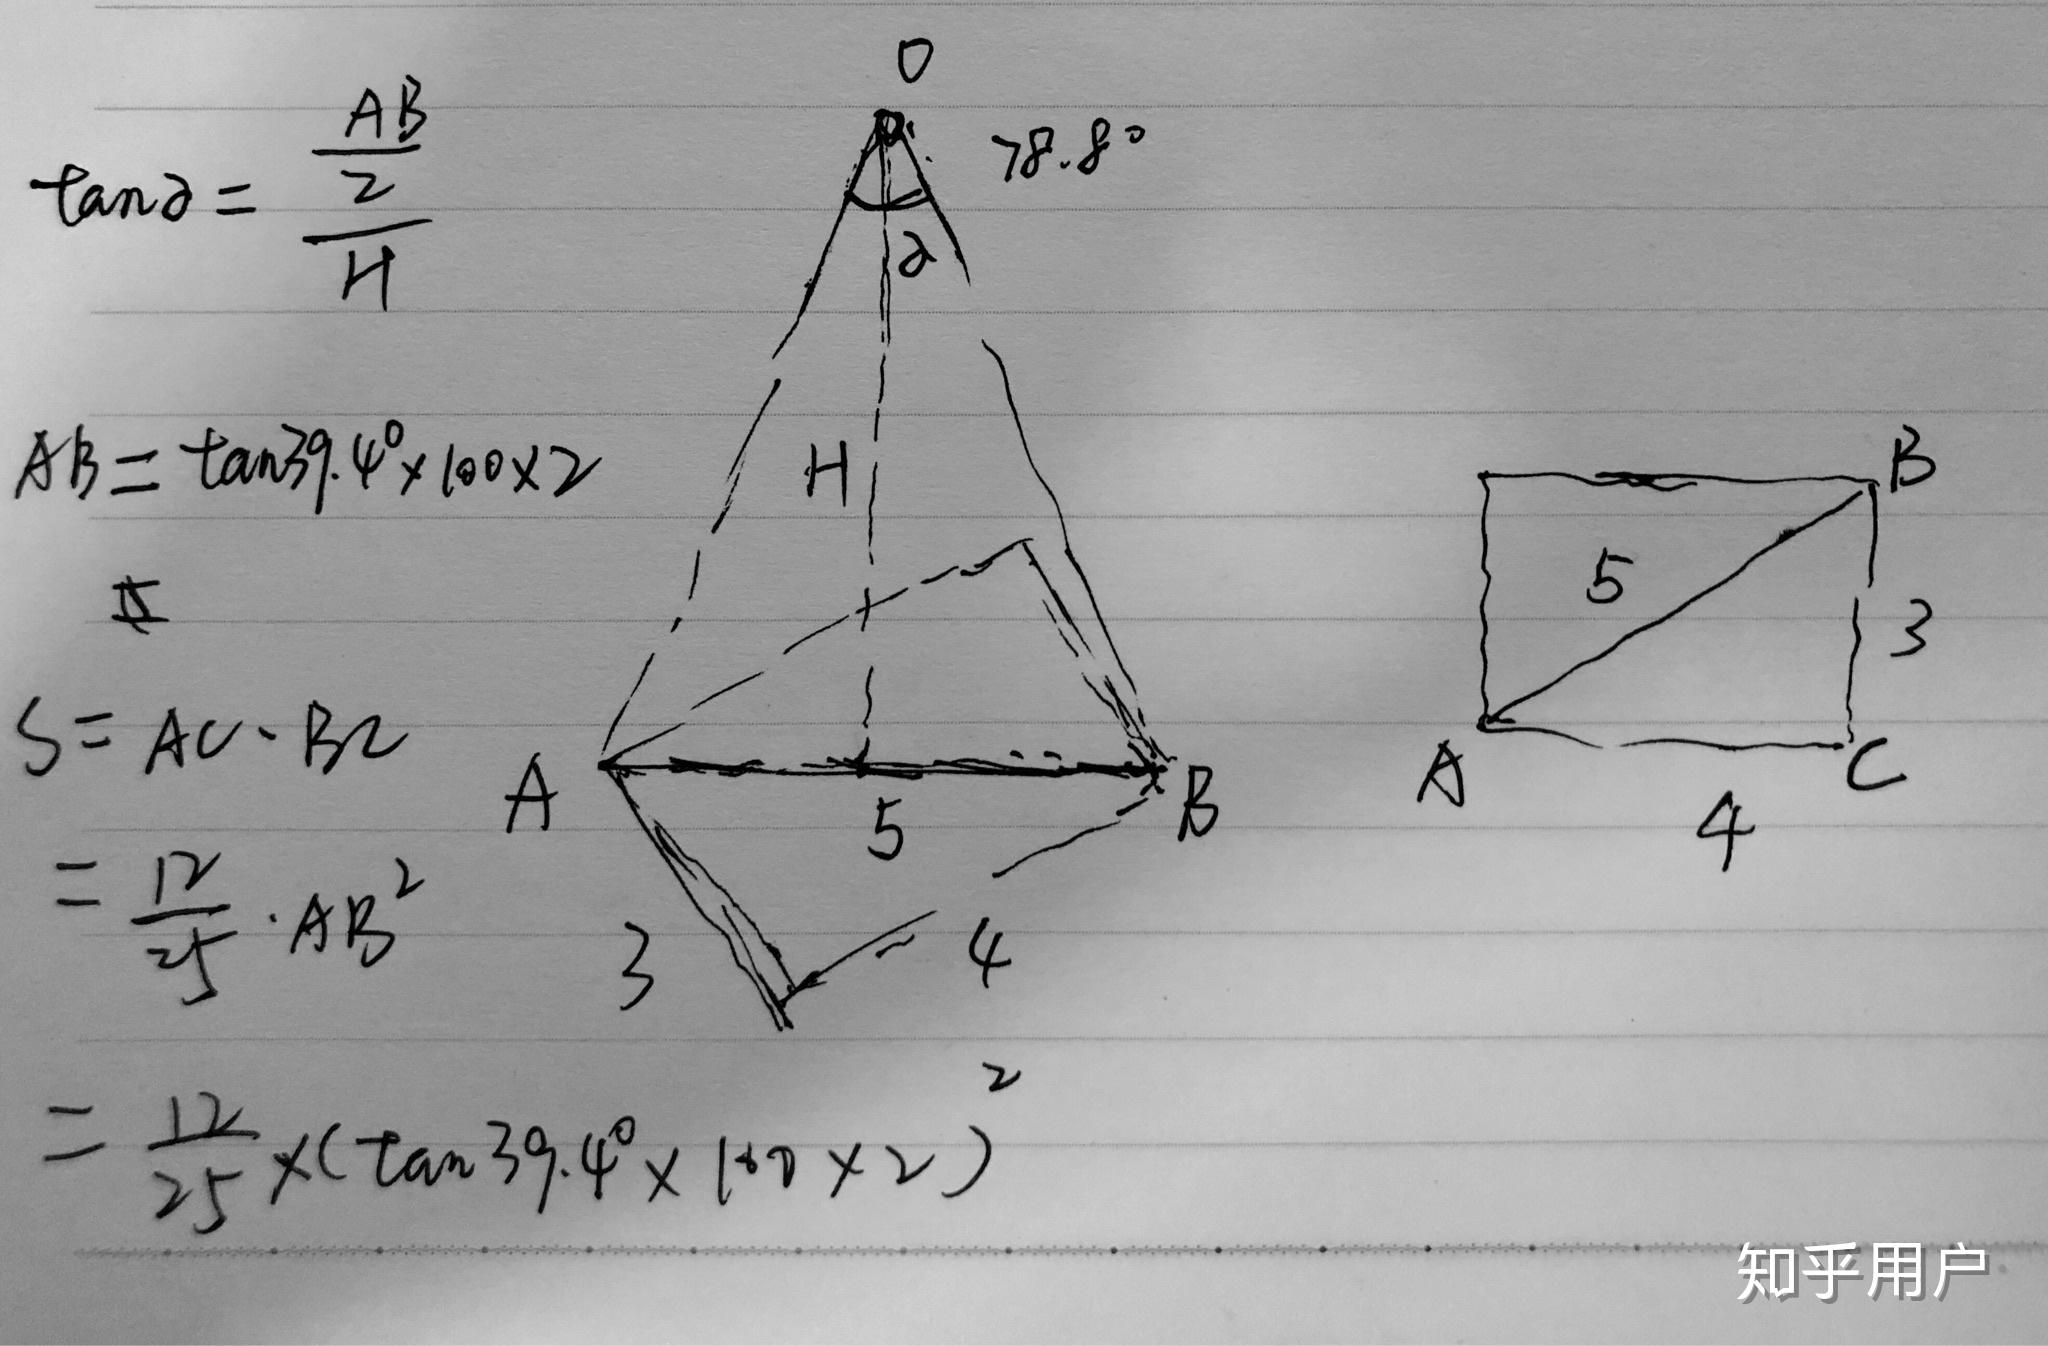 O
78.8°
tan∂ = \frac{\frac{AB}{2}}{H}
∂
H
AB = tan39.4°×100×2
S = AC·BC
= \frac{12}{25}·AB²
= \frac{12}{25}×(tan39.4°×100×2)²
A
5
B
3
4
B
5
3
A
C
4
知乎用户